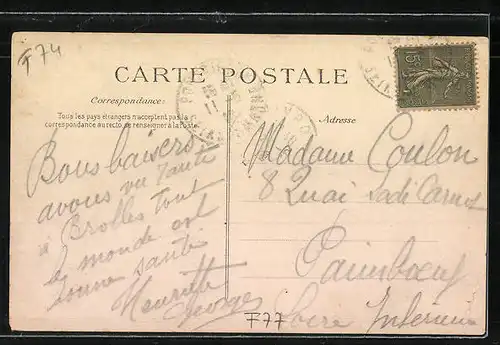 F74
CARTE POSTALE
Correspondance:
Tous les pays étrangers n'acceptent pas la
correspondance au recto, se renseigner à la Poste
Adresse
15c
Bons baisers
avons vu tante
à Brolles tout
le monde est
bonne santé
Henriette
Georges
Madame Coulon
8 Quai Sadi Carnot
Paimboeuf
Loire Inférieure
F77